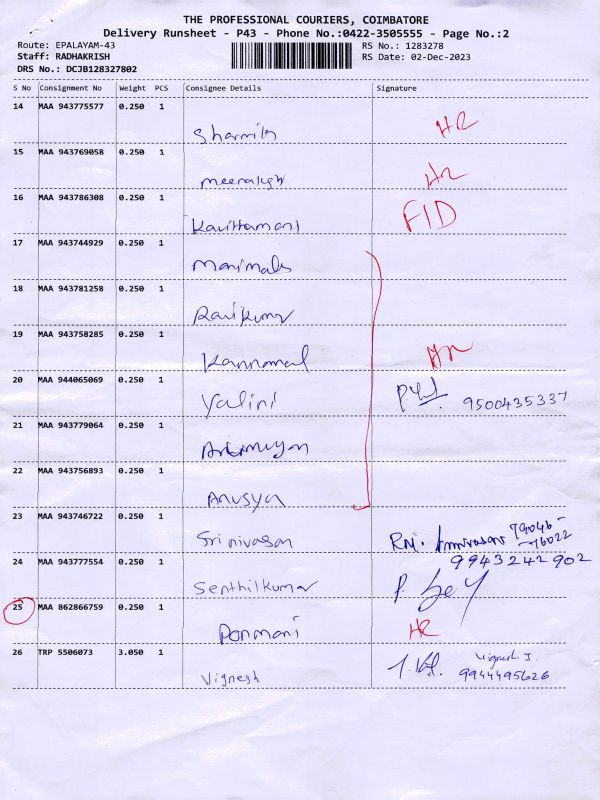 THE PROFESSIONAL COURIERS, COIMBATORE
Delivery Runsheet - P43 - Phone No.:0422-3505555 - Page No.:2
Route: EPALAYAM-43 RS No.: 1283278
Staff: RADHAKRISH RS Date: 02-Dec-2023
DRS No.: DCJB128327802
S No Consignment No Weight PCS Consignee Details Signature
14 MAA 943775577 0.250 1
Sharmila HR
15 MAA 943769058 0.250 1
HR
16 MAA 943786308 0.250 1
Kavithamani FID
17 MAA 943744929 0.250 1
Manimala
18 MAA 943781258 0.250 1
Ravikumar
19 MAA 943758285 0.250 1
Kannamal HR
20 MAA 944065069 0.250 1
Yalini 9500435337
21 MAA 943779064 0.250 1
22 MAA 943756893 0.250 1
Anusya
23 MAA 943746722 0.250 1
Srinivasan 79046-
-76022
24 MAA 943777554 0.250 1 9943242902
Senthilkumar
25 MAA 862866759 0.250 1
Ponmani HR
26 TRP 5506073 3.050 1
Vignesh Vignesh. J.
9944495626